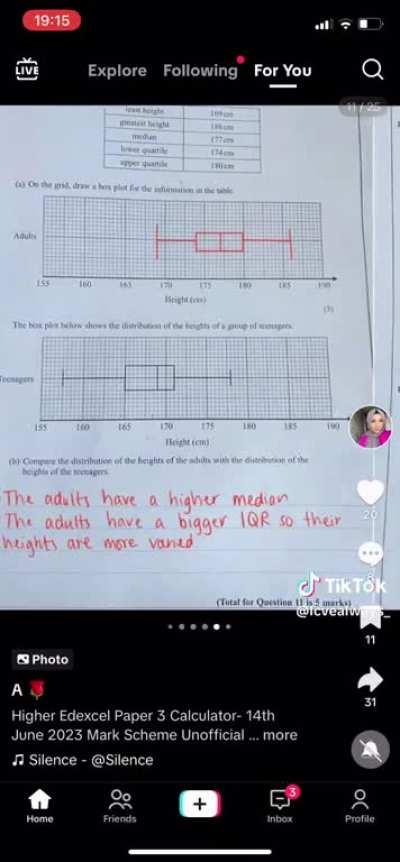 19:15
LIVE
Explore Following For You
11 / 25
least height 169cm
greatest height 186cm
median 177cm
lower quartile 174cm
upper quartile 180cm
(a) On the grid, draw a box plot for the information in the table.
Adults
155 160 165 170 175 180 185 190
Height (cm)
(3)
The box plot below shows the distribution of the heights of a group of teenagers.
Teenagers
155 160 165 170 175 180 185 190
Height (cm)
(b) Compare the distribution of the heights of the adults with the distribution of the
heights of the teenagers.
The adults have a higher median
The adults have a bigger IQR so their
heights are more varied.
20
TikTok
(Total for Question 11 is 5 marks)
11
31
Photo
A
Higher Edexcel Paper 3 Calculator- 14th
June 2023 Mark Scheme Unofficial ... more
Silence - @Silence
3
Home Friends Inbox Profile